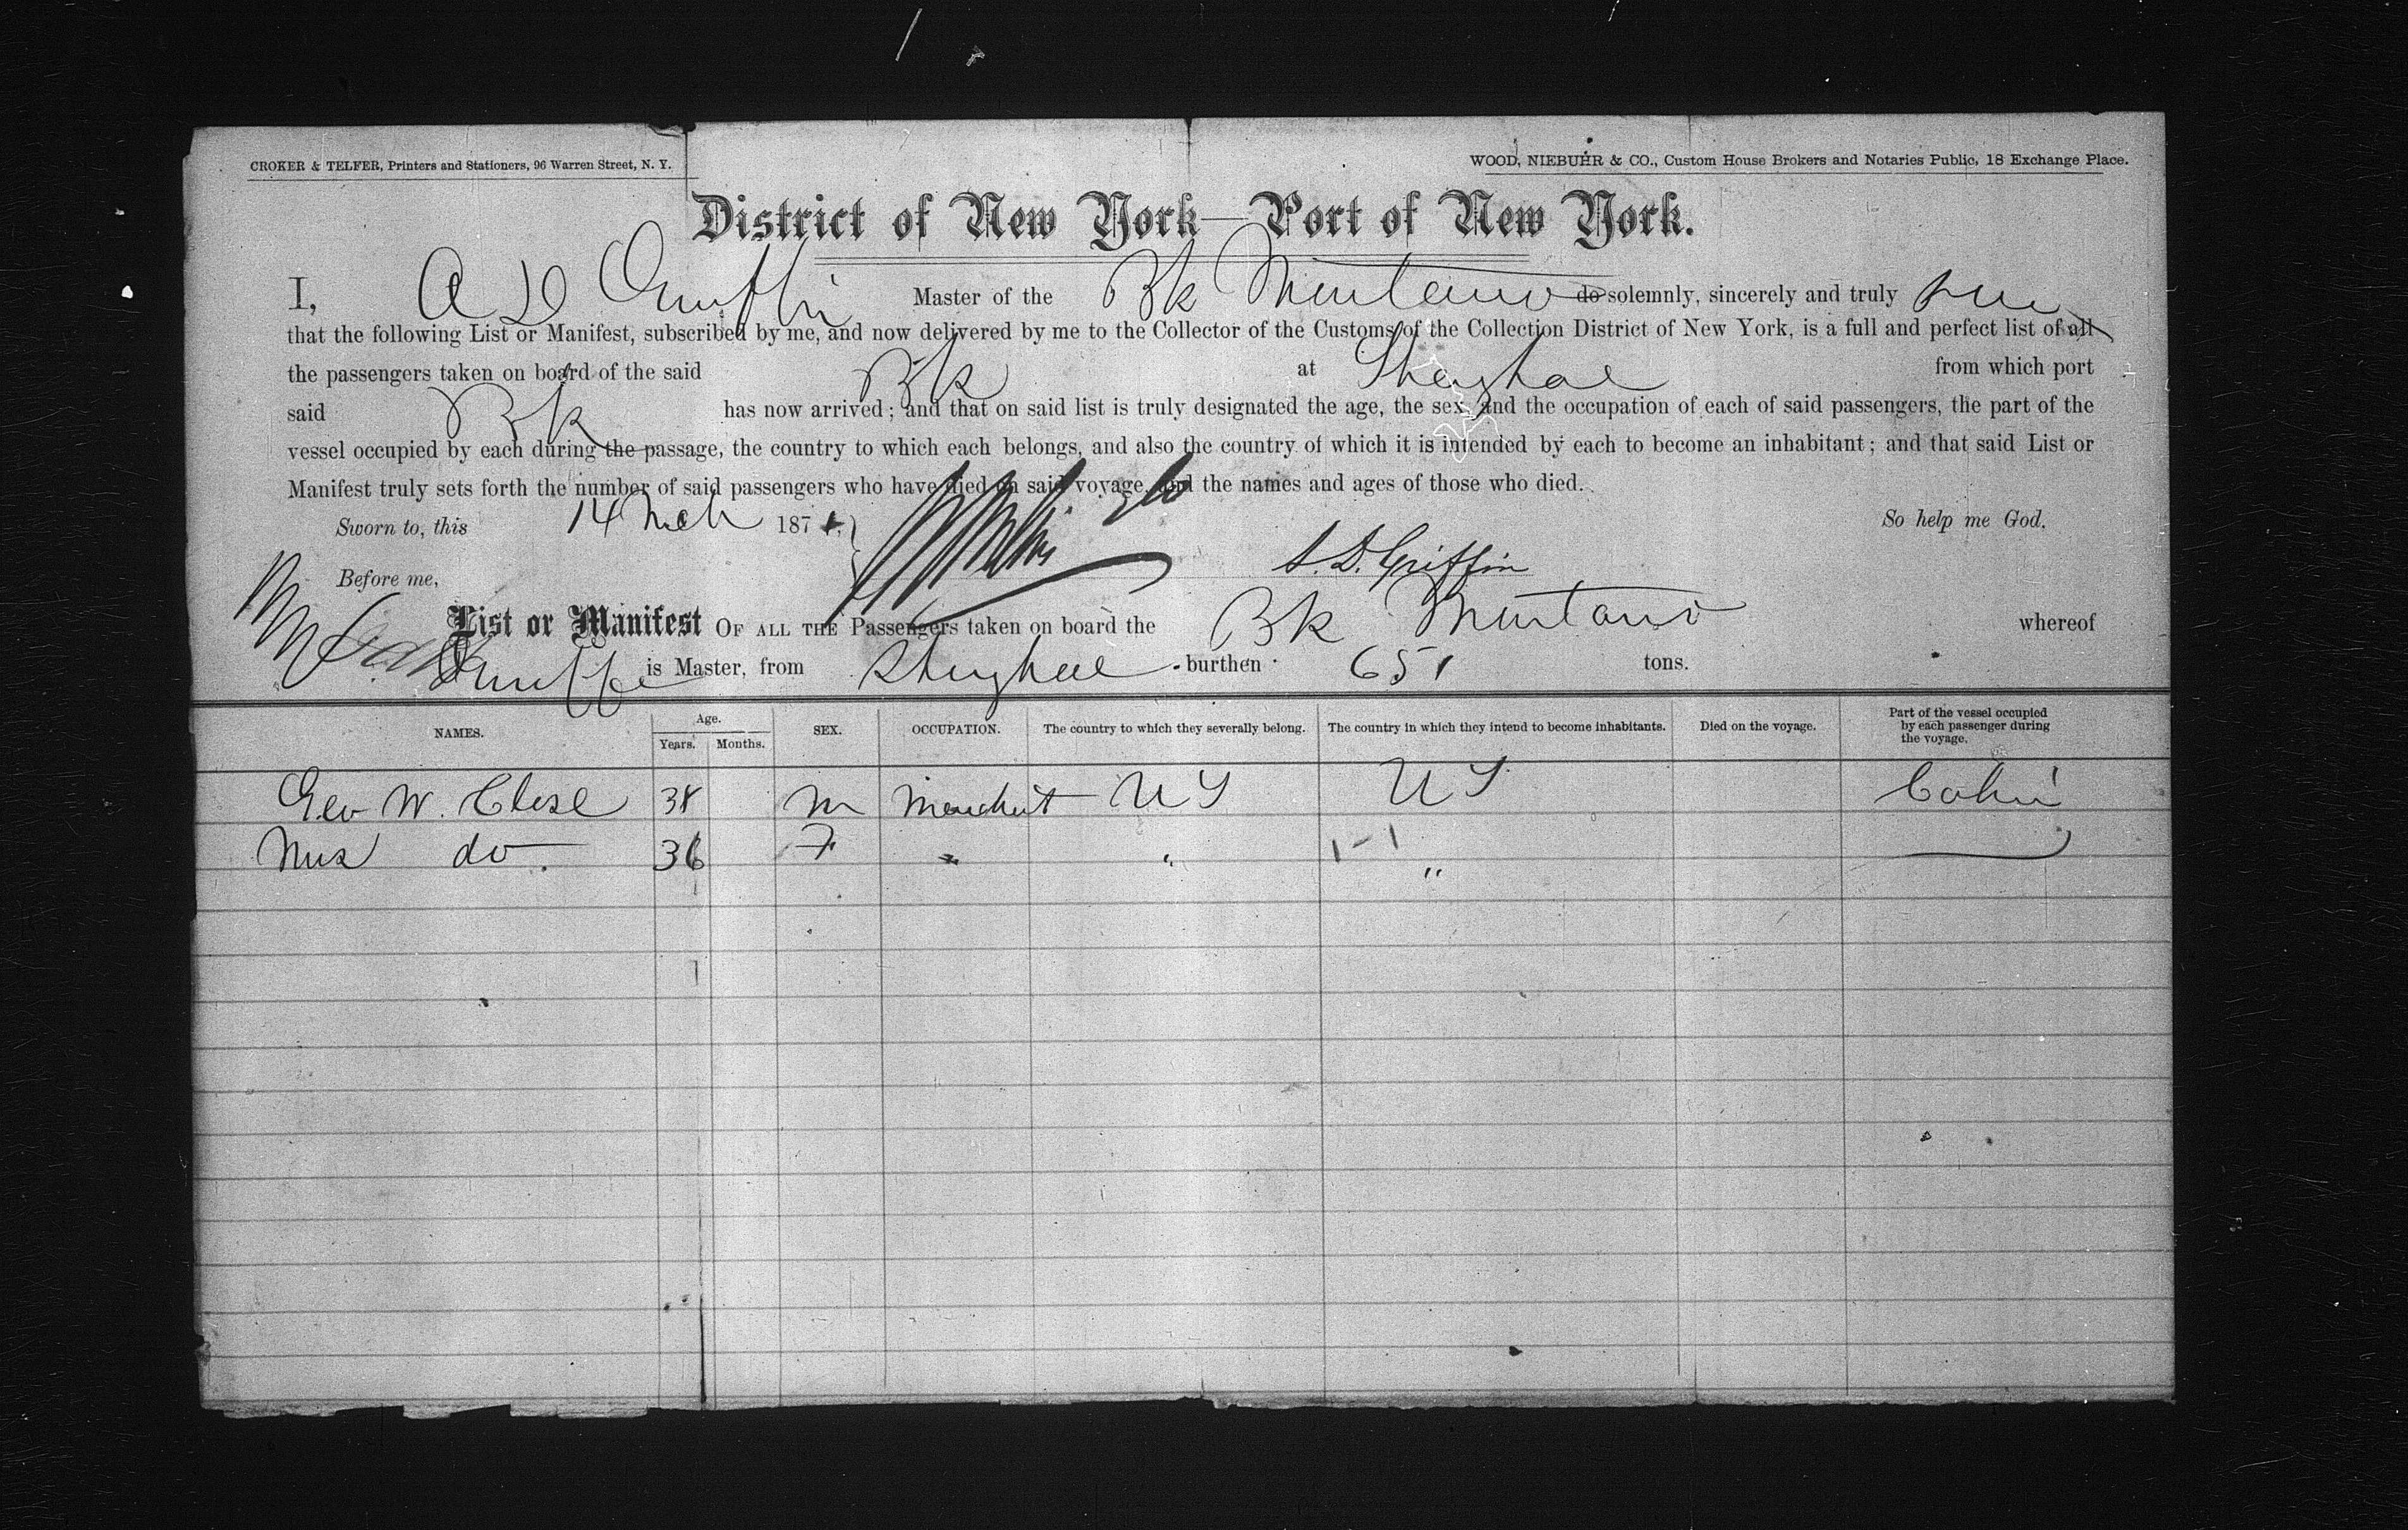 CROKER & TELFER, Printers and Stationers, 96 Warren Street, N. Y.
WOOD, NIEBUHR & CO., Custom House Brokers and Notaries Public, 18 Exchange Place.
District of New York—Port of New York.
I, A D Griffin Master of the Bk do solemnly, sincerely and truly
that the following List or Manifest, subscribed by me, and now delivered by me to the Collector of the Customs of the Collection District of New York, is a full and perfect list of all
the passengers taken on board of the said Bk at Shanghae from which port
said Bk has now arrived; and that on said list is truly designated the age, the sex, and the occupation of each of said passengers, the part of the
vessel occupied by each during the passage, the country to which each belongs, and also the country of which it is intended by each to become an inhabitant; and that said List or
Manifest truly sets forth the number of said passengers who have died on said voyage, and the names and ages of those who died.
Sworn to, this 14 Mch 187 So help me God.
Before me, A. D. Griffin
List or Manifest OF ALL THE Passengers taken on board the Bk whereof
Griffin is Master, from Shanghae burthen 651 tons.
NAMES. Age. Years. Months. SEX. OCCUPATION. The country to which they severally belong. The country in which they intend to become inhabitants. Died on the voyage. Part of the vessel occupied by each passenger during the voyage.
Geo W. 38 M Merchant U S U S Cabin
Mrs do. 36 F " " "